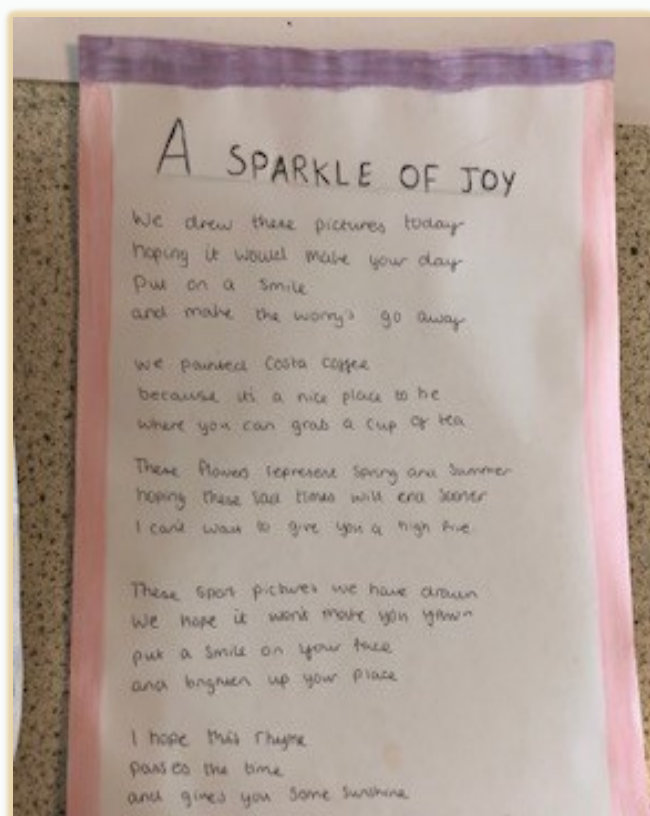 A SPARKLE OF JOY
We drew these pictures today
hoping it would make your day
Put on a smile
and make the worry's go away
we painted Costa coffee
because it's a nice place to be
where you can grab a cup of tea
These flowers represent Spring and Summer
hoping these sad times will end sooner
I can't wait to give you a high five
These sport pictures we have drawn
We hope it won't make you yawn
put a smile on your face
and brighten up your place
I hope this rhyme
passes the time
and gives you some sunshine